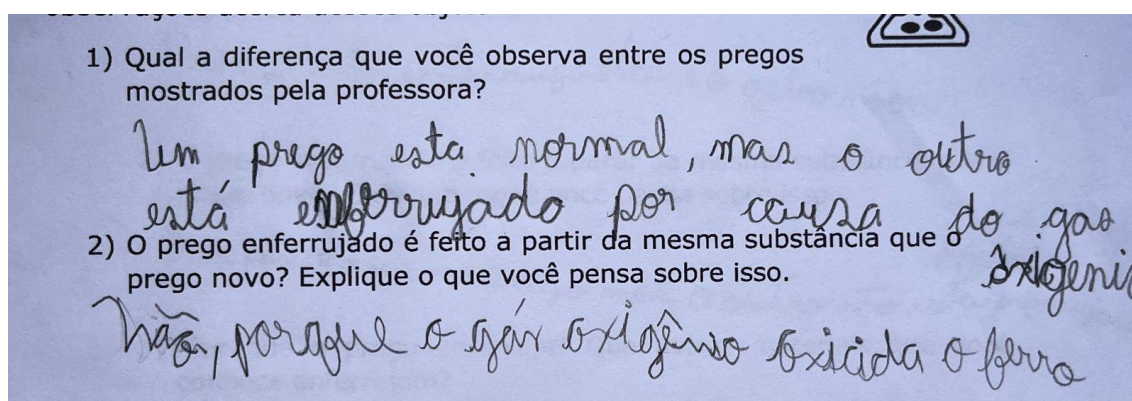 1) Qual a diferença que você observa entre os pregos
mostrados pela professora?
Um prego esta normal, mas o outro
está enferrujado por causa do gas
oxigenio
2) O prego enferrujado é feito a partir da mesma substância que o
prego novo? Explique o que você pensa sobre isso.
Não, porque o gás oxigênio oxicida o ferro